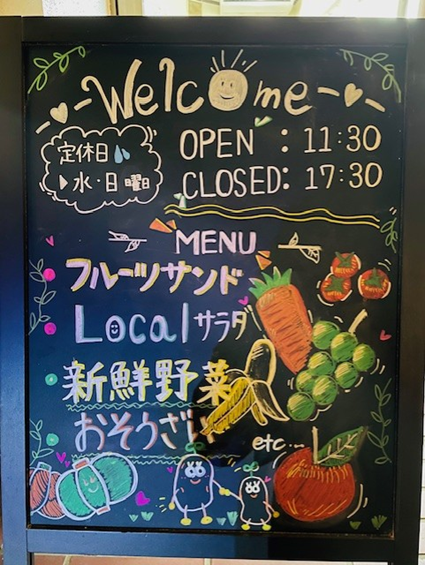 Welcome
定休日
▶水・日曜日
OPEN : 11:30
CLOSED: 17:30
MENU
フルーツサンド
Local サラダ
新鮮野菜
おそうざい
etc...